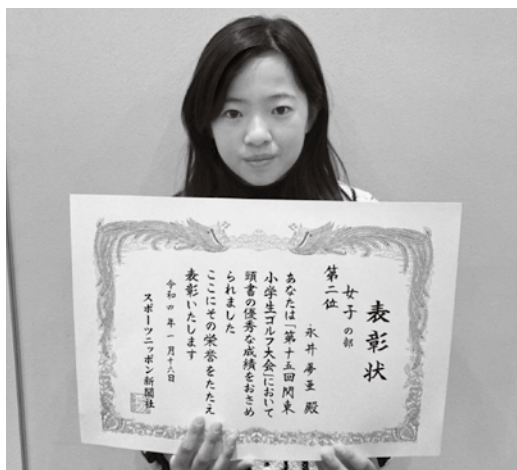 表彰状
女子の部
第二位
永井夢亜殿
あなたは「第十五回関東
小学生ゴルフ大会」において
頭書の優秀な成績をおさめ
られました
ここにその栄誉をたたえ
表彰いたします
令和四年一月十六日
スポーツニッポン新聞社